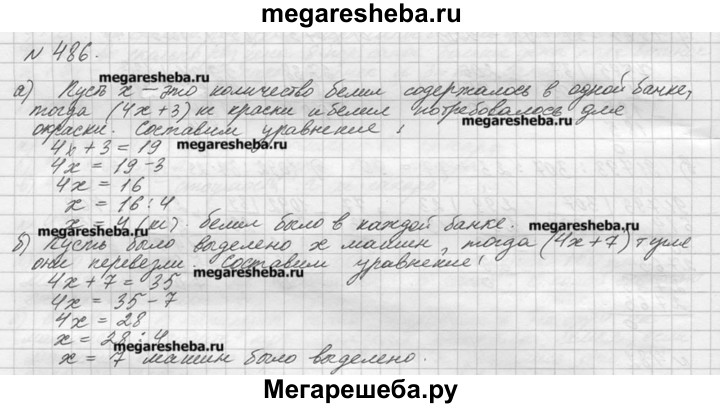 megaresheba.ru
№ 486.
megaresheba.ru
а) Пусть x – это количество белил содержалось в одной банке,
тогда (4x+3) кг краски и белил потребовалось для
megaresheba.ru
окраски. Составим уравнение:
4x+3 = 19
megaresheba.ru
4x = 19-3
4x = 16
x = 16:4
x = 4 (кг) белил было в каждой банке.
megaresheba.ru
megaresheba.ru
б) Пусть было выделено x машин, тогда (4x+7) т угля
они перевезли. Составим уравнение:
megaresheba.ru
4x+7 = 35
4x = 35-7
4x = 28
x = 28:4
megaresheba.ru
x = 7 машин было выделено.
Мегарешеба.ру